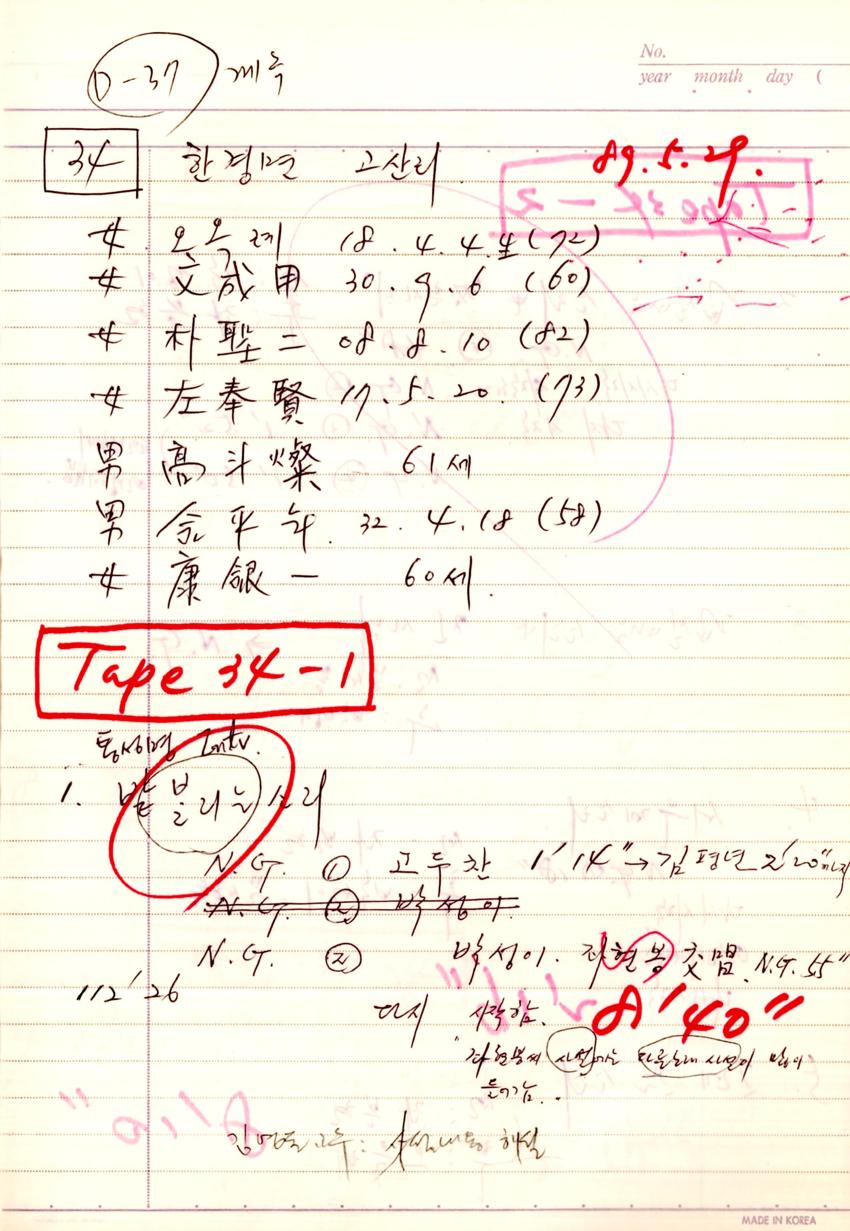 No.
year month day (
D-37 계속
34 한경면 고산리 89.5.29.
女 오옥례 18.4.4.生(72)
女 文成用 30.9.6 (60)
女 朴聖二 08.8.10 (82)
女 左奉賢 17.5.20. (73)
男 高斗燦 61세
男 金平年. 32.4.18 (58)
女 康銀一 60세.
Tape 34-1
통성명 Intv.
1. 밭 볼리는 소리
N.G. ① 고두찬 1'14"→김평년 2'20"까지
N.G. ② 박성이.
N.G. ② 박성이. 좌현봉 交唱. N.G. 55"
112'26
다시 시작함. 8'40"
"좌현봉씨 사설에는 다른노래 사설이 많이
들어감..
김영돈 교수: 사설내용 해설